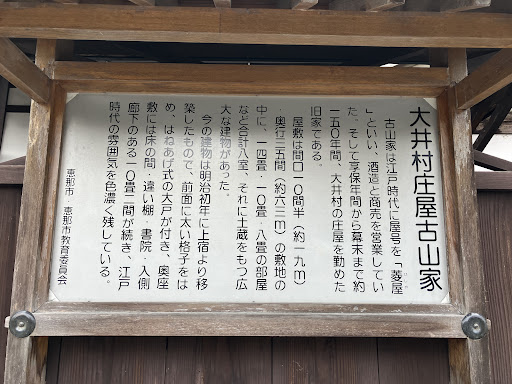 大井村庄屋古山家
古山家は江戸時代に屋号を「菱屋
」といい、酒造と商売を営業してい
た、そして享保年間から幕末まで約
一五〇年間、大井村の庄屋を勤めた
旧家である。
屋敷は間口一〇間半(約一九m)
奥行三五間(約六三m)の敷地の
中に、一四畳・一〇畳・八畳の部屋
など合計八室、それに土蔵をもつ広
大な建物があった。
今の建物は明治初年に上宿より移
築したもので、前面に太い格子をは
め、はねあげ式の大戸が付き、奥座
敷には床の間・違い棚・書院・入側
廊下のある一〇畳二間が続き、江戸
時代の雰囲気を色濃く残している。
恵那市・恵那市教育委員会